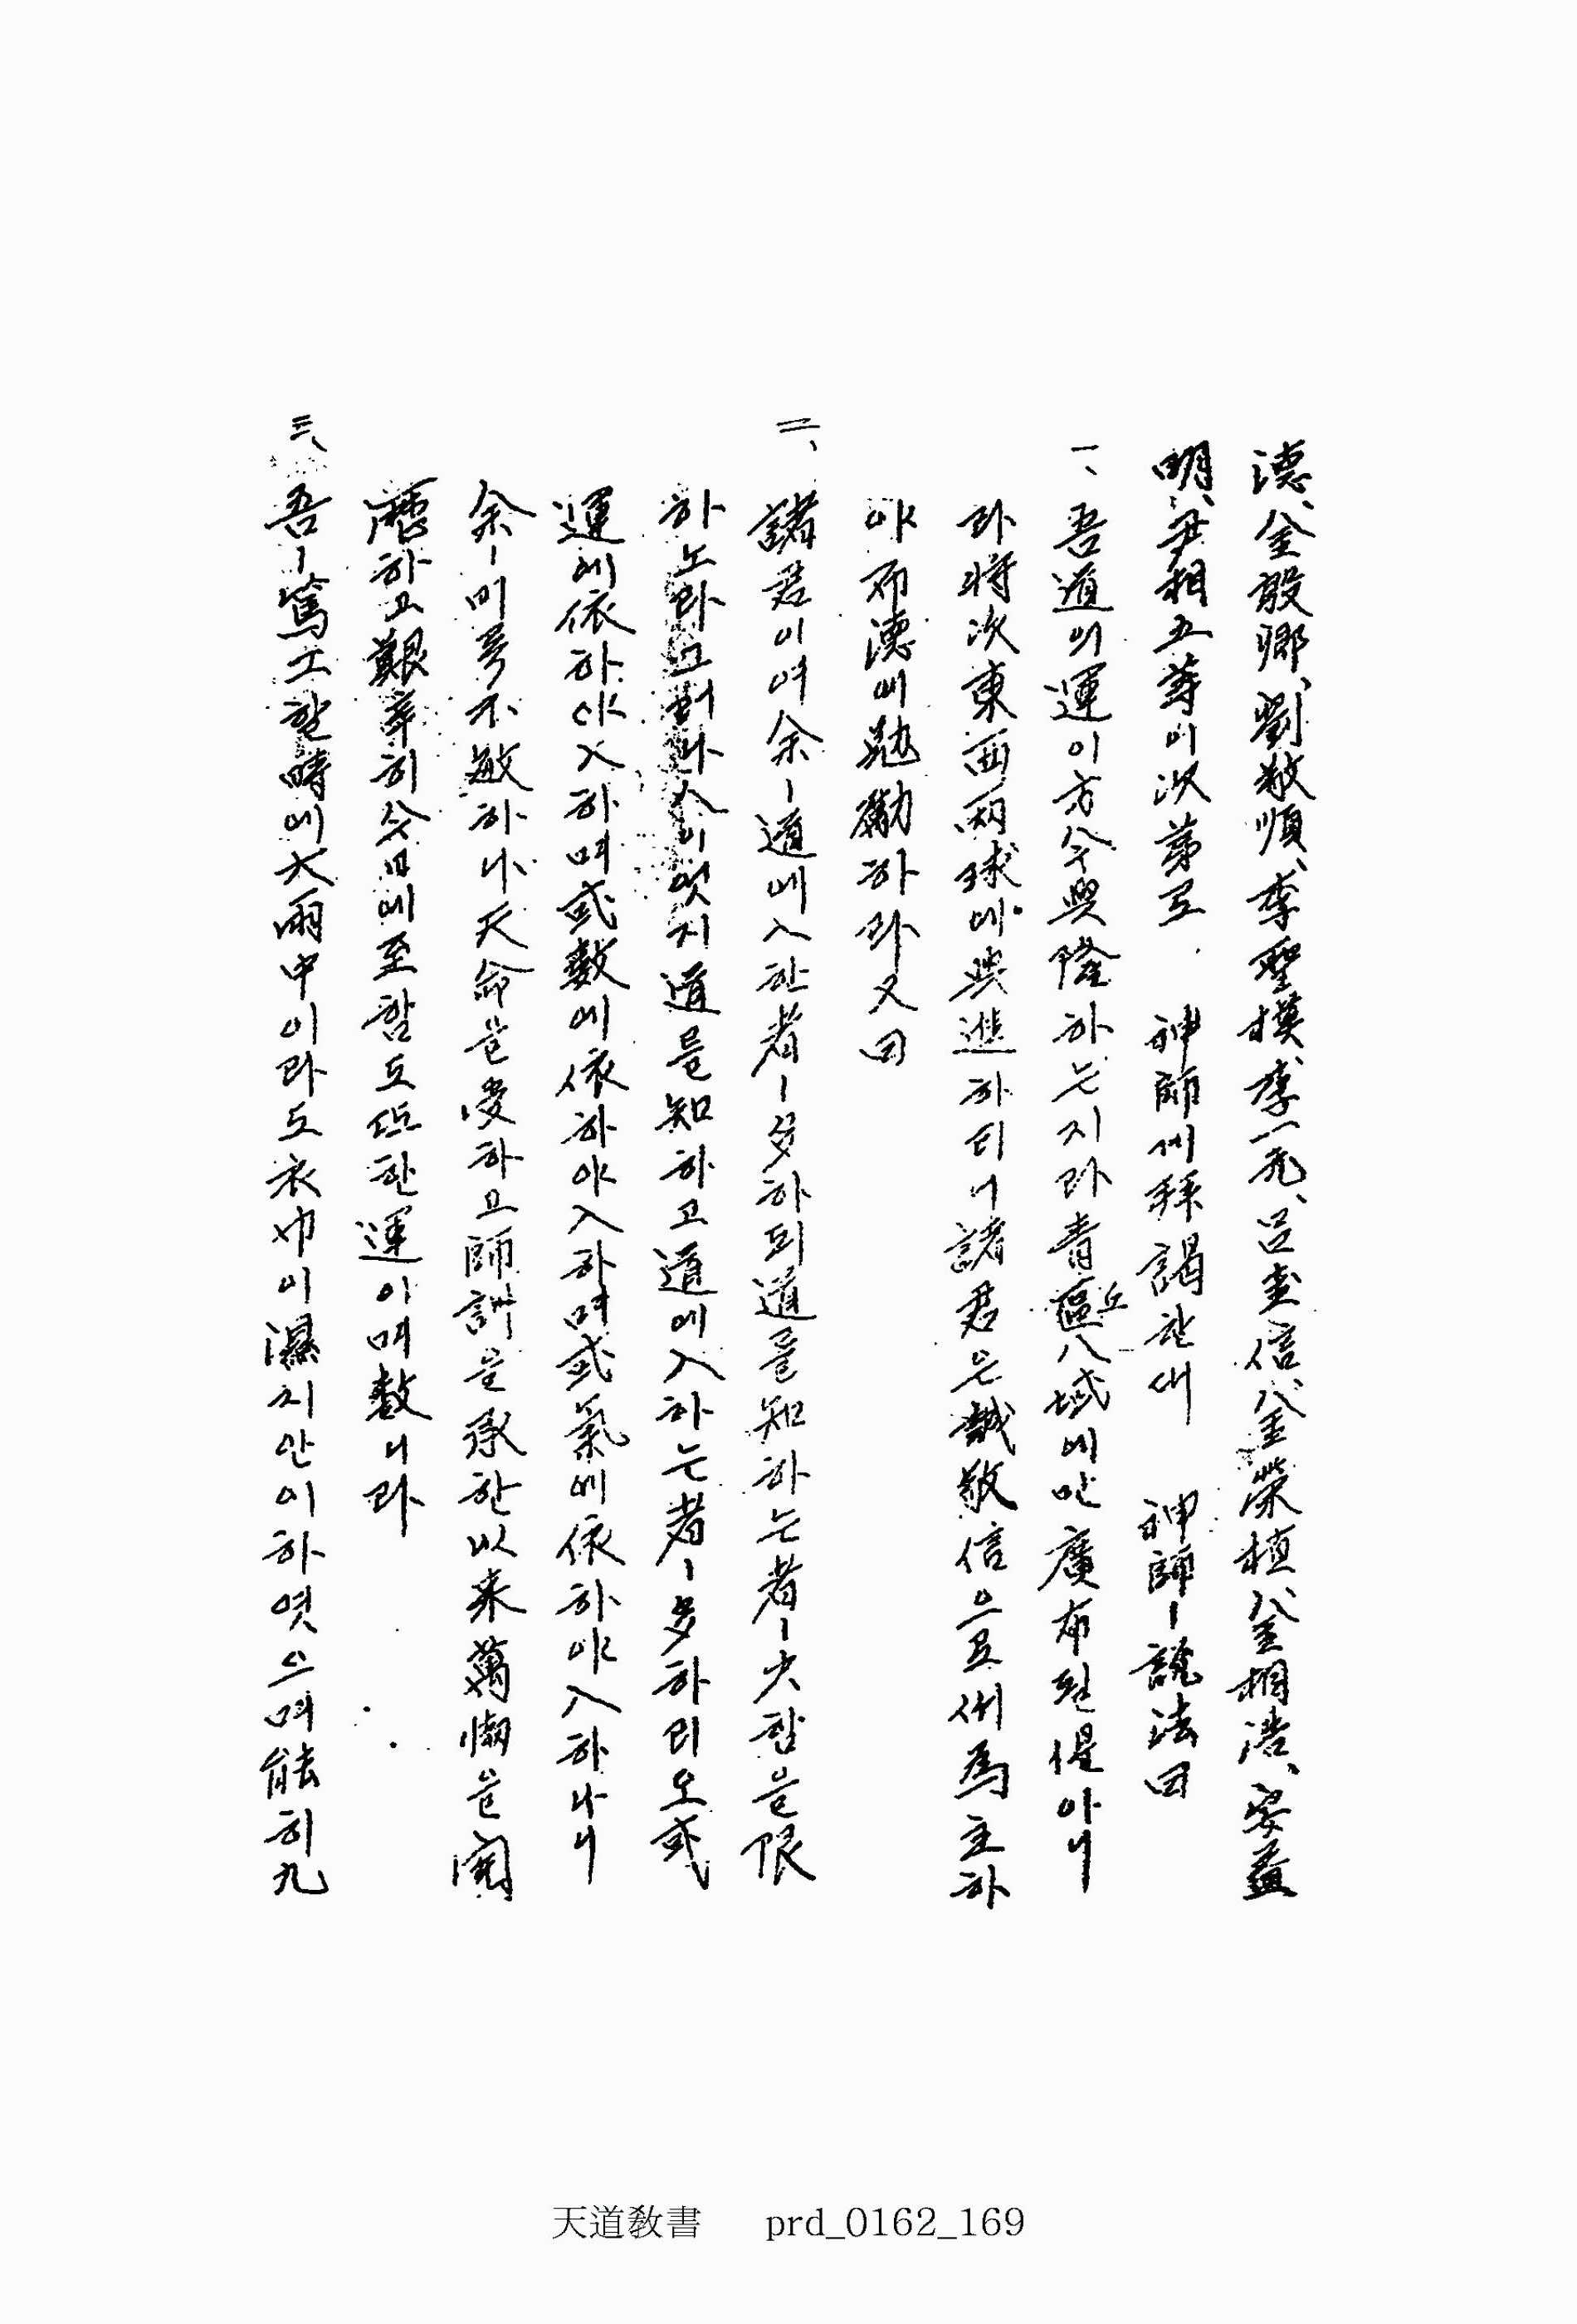 德、金殷卿、劉敬順、李聖模、李一元、呂圭信、金榮植、金相浩、安益
明、尹相五等이次第로 神師께拜謁한대 神師ㅣ說法曰
一、吾道의運이方今興隆하는지라青區丘八域에만廣布될뿐아니
라將次東西兩球에興進하되니諸君은誠敬信으로써爲主하
야布德에勉勵하라又曰
二、諸君이여余ㅣ道에入한者ㅣ多하되道를知하는者ㅣ少함을恨
하노라그러나人이엇지道를知하고道에入하는者ㅣ多하리오或
運에依하야入하며或數에依하야入하며或氣에依하야入하나니
余ㅣ비록不敏하나天命을受하고師訓을承한以来萬懶을閱
歷하고艱辛히今日에至함도亦한運이며數니라
三、吾ㅣ篤工할時에大雨中이라도衣巾이濕치안이하엿으며能히九
天道敎書 prd_0162_169